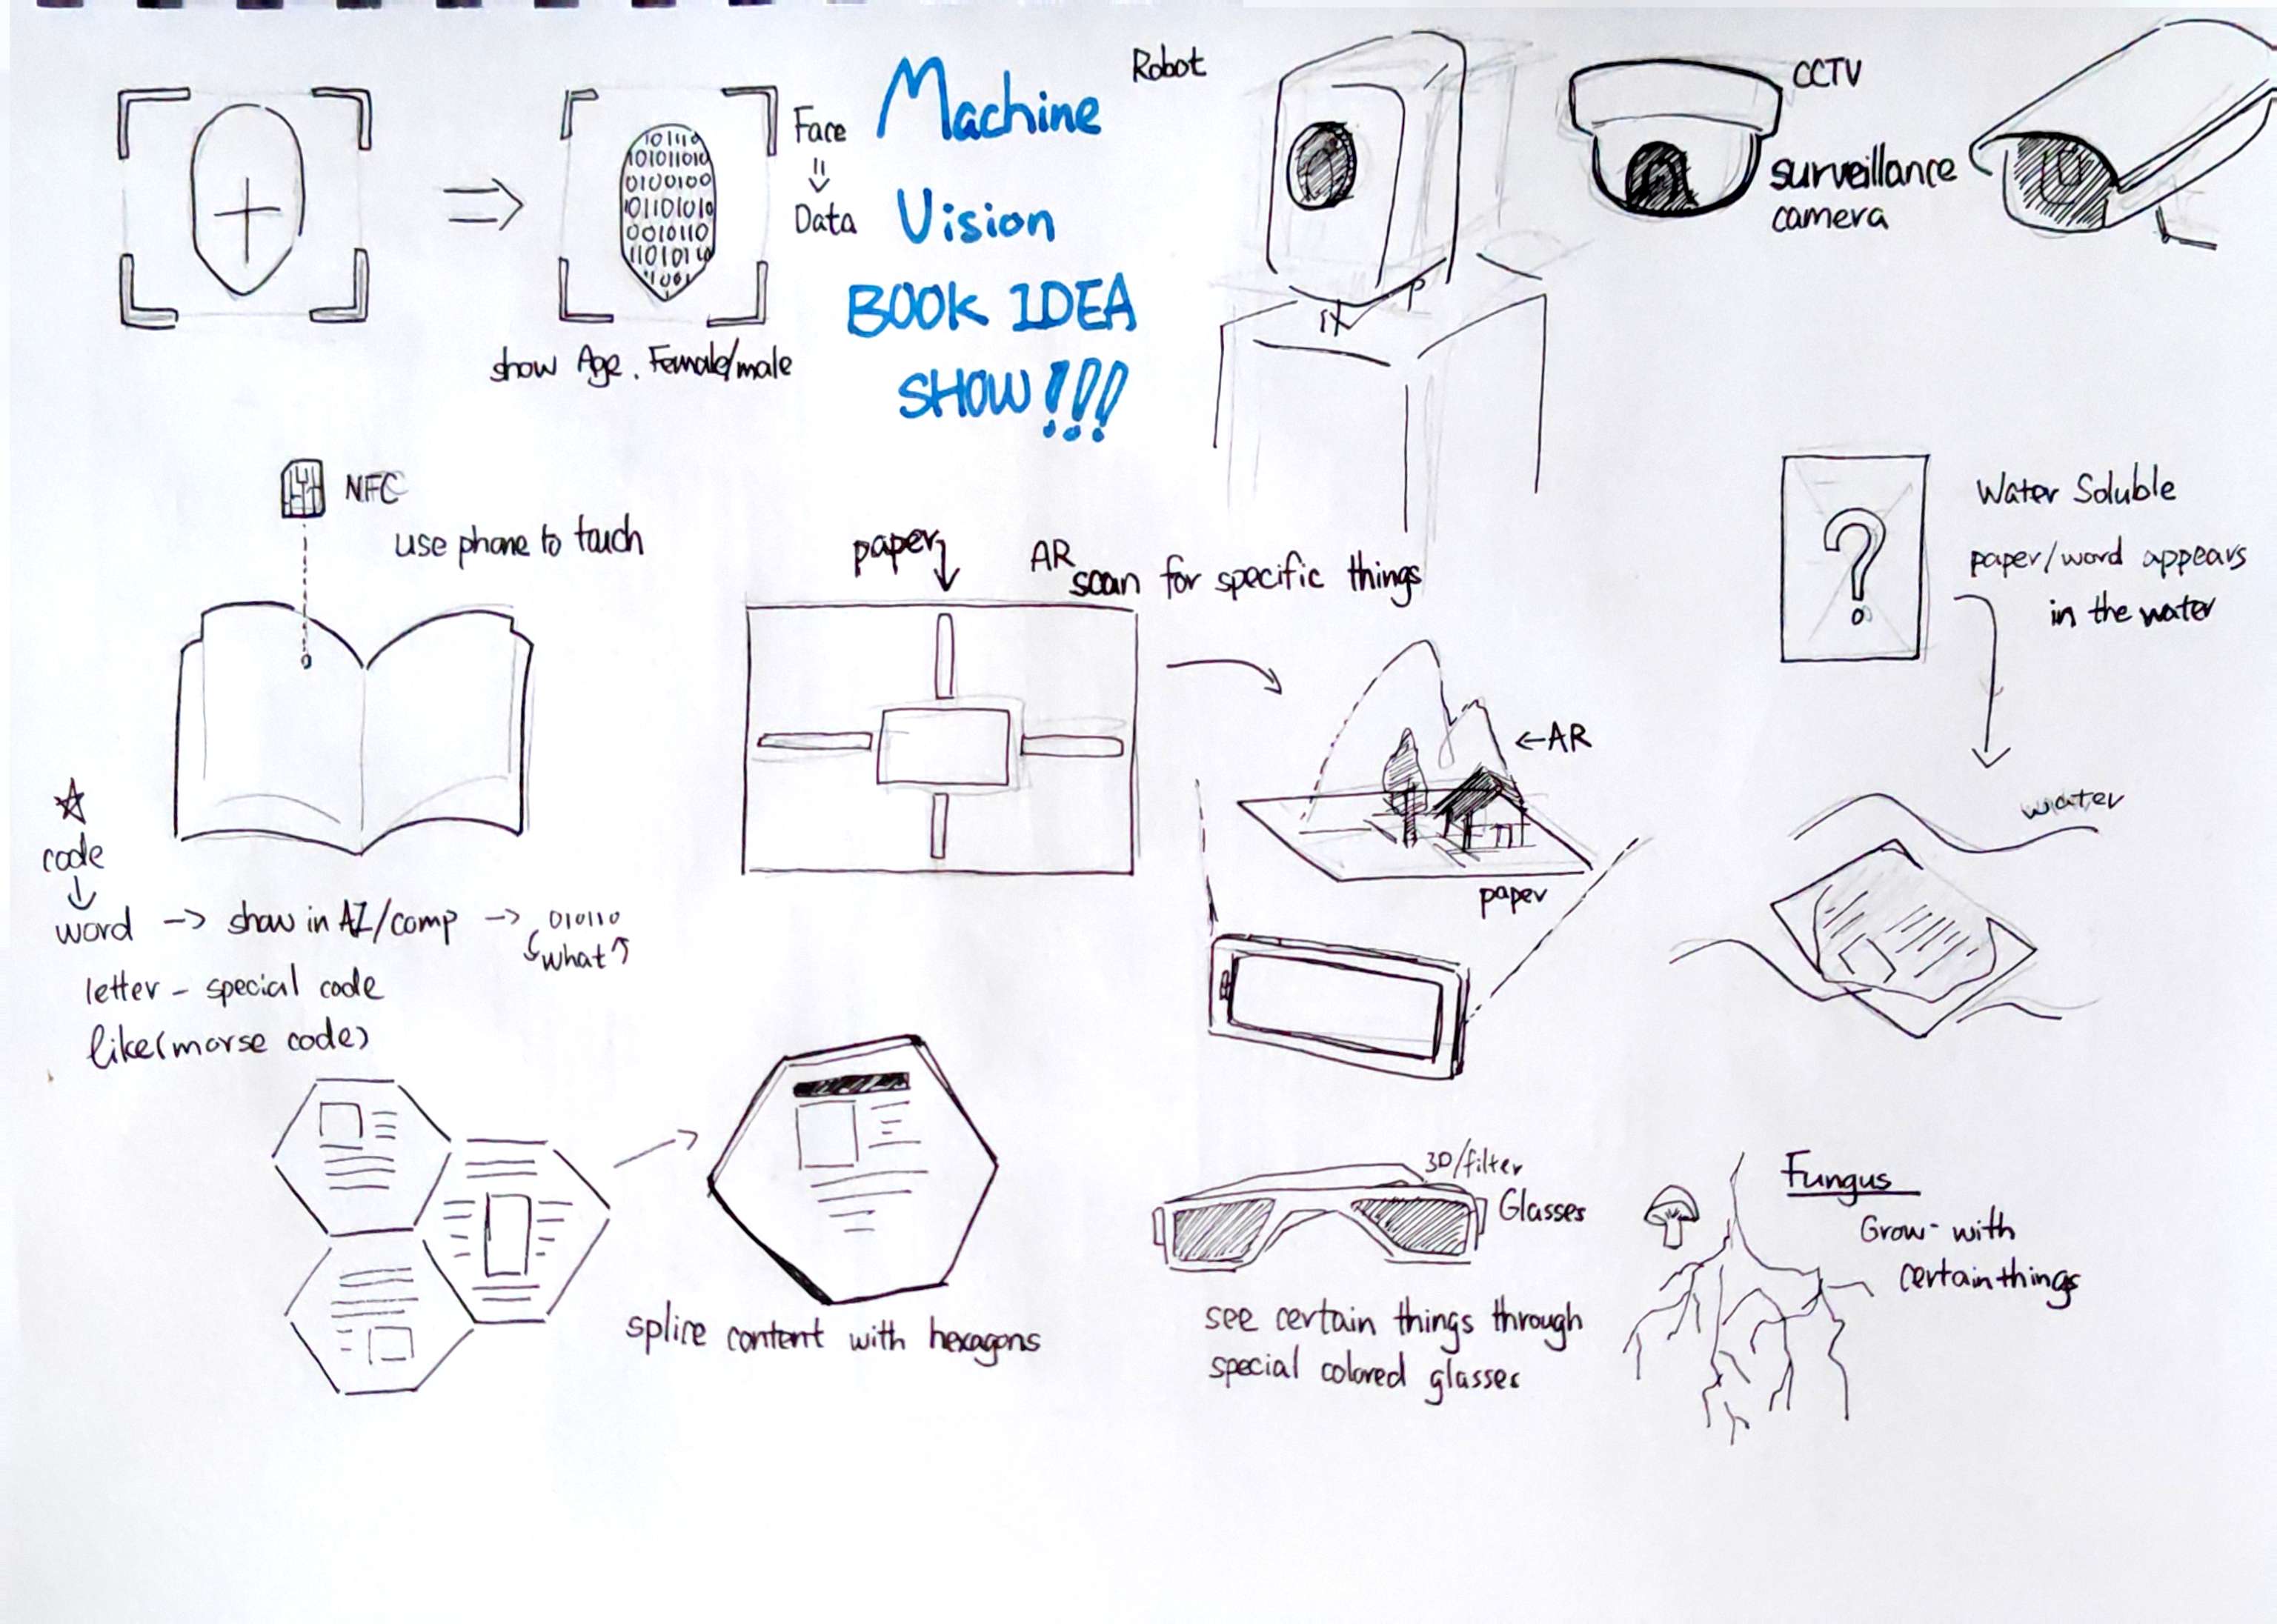 Machine
Vision
BOOK IDEA
SHOW!!!
101110
101011010
0100100
01101010
0010110
1101010
1001
Face
Data
show Age. Female/male
Robot
CCTV
surveillance
camera
NFC
use phone to touch
paper
AR
scan for specific things
←AR
paper
?
Water Soluble
paper/word appears
in the water
water
☆
code
↓
word -> show in AI/comp -> 010110
what
letter - special code
like(morse code)
splice content with hexagons
3D/filter
Glasses
see certain things through
special colored glasses
Fungus
Grow with
certain things